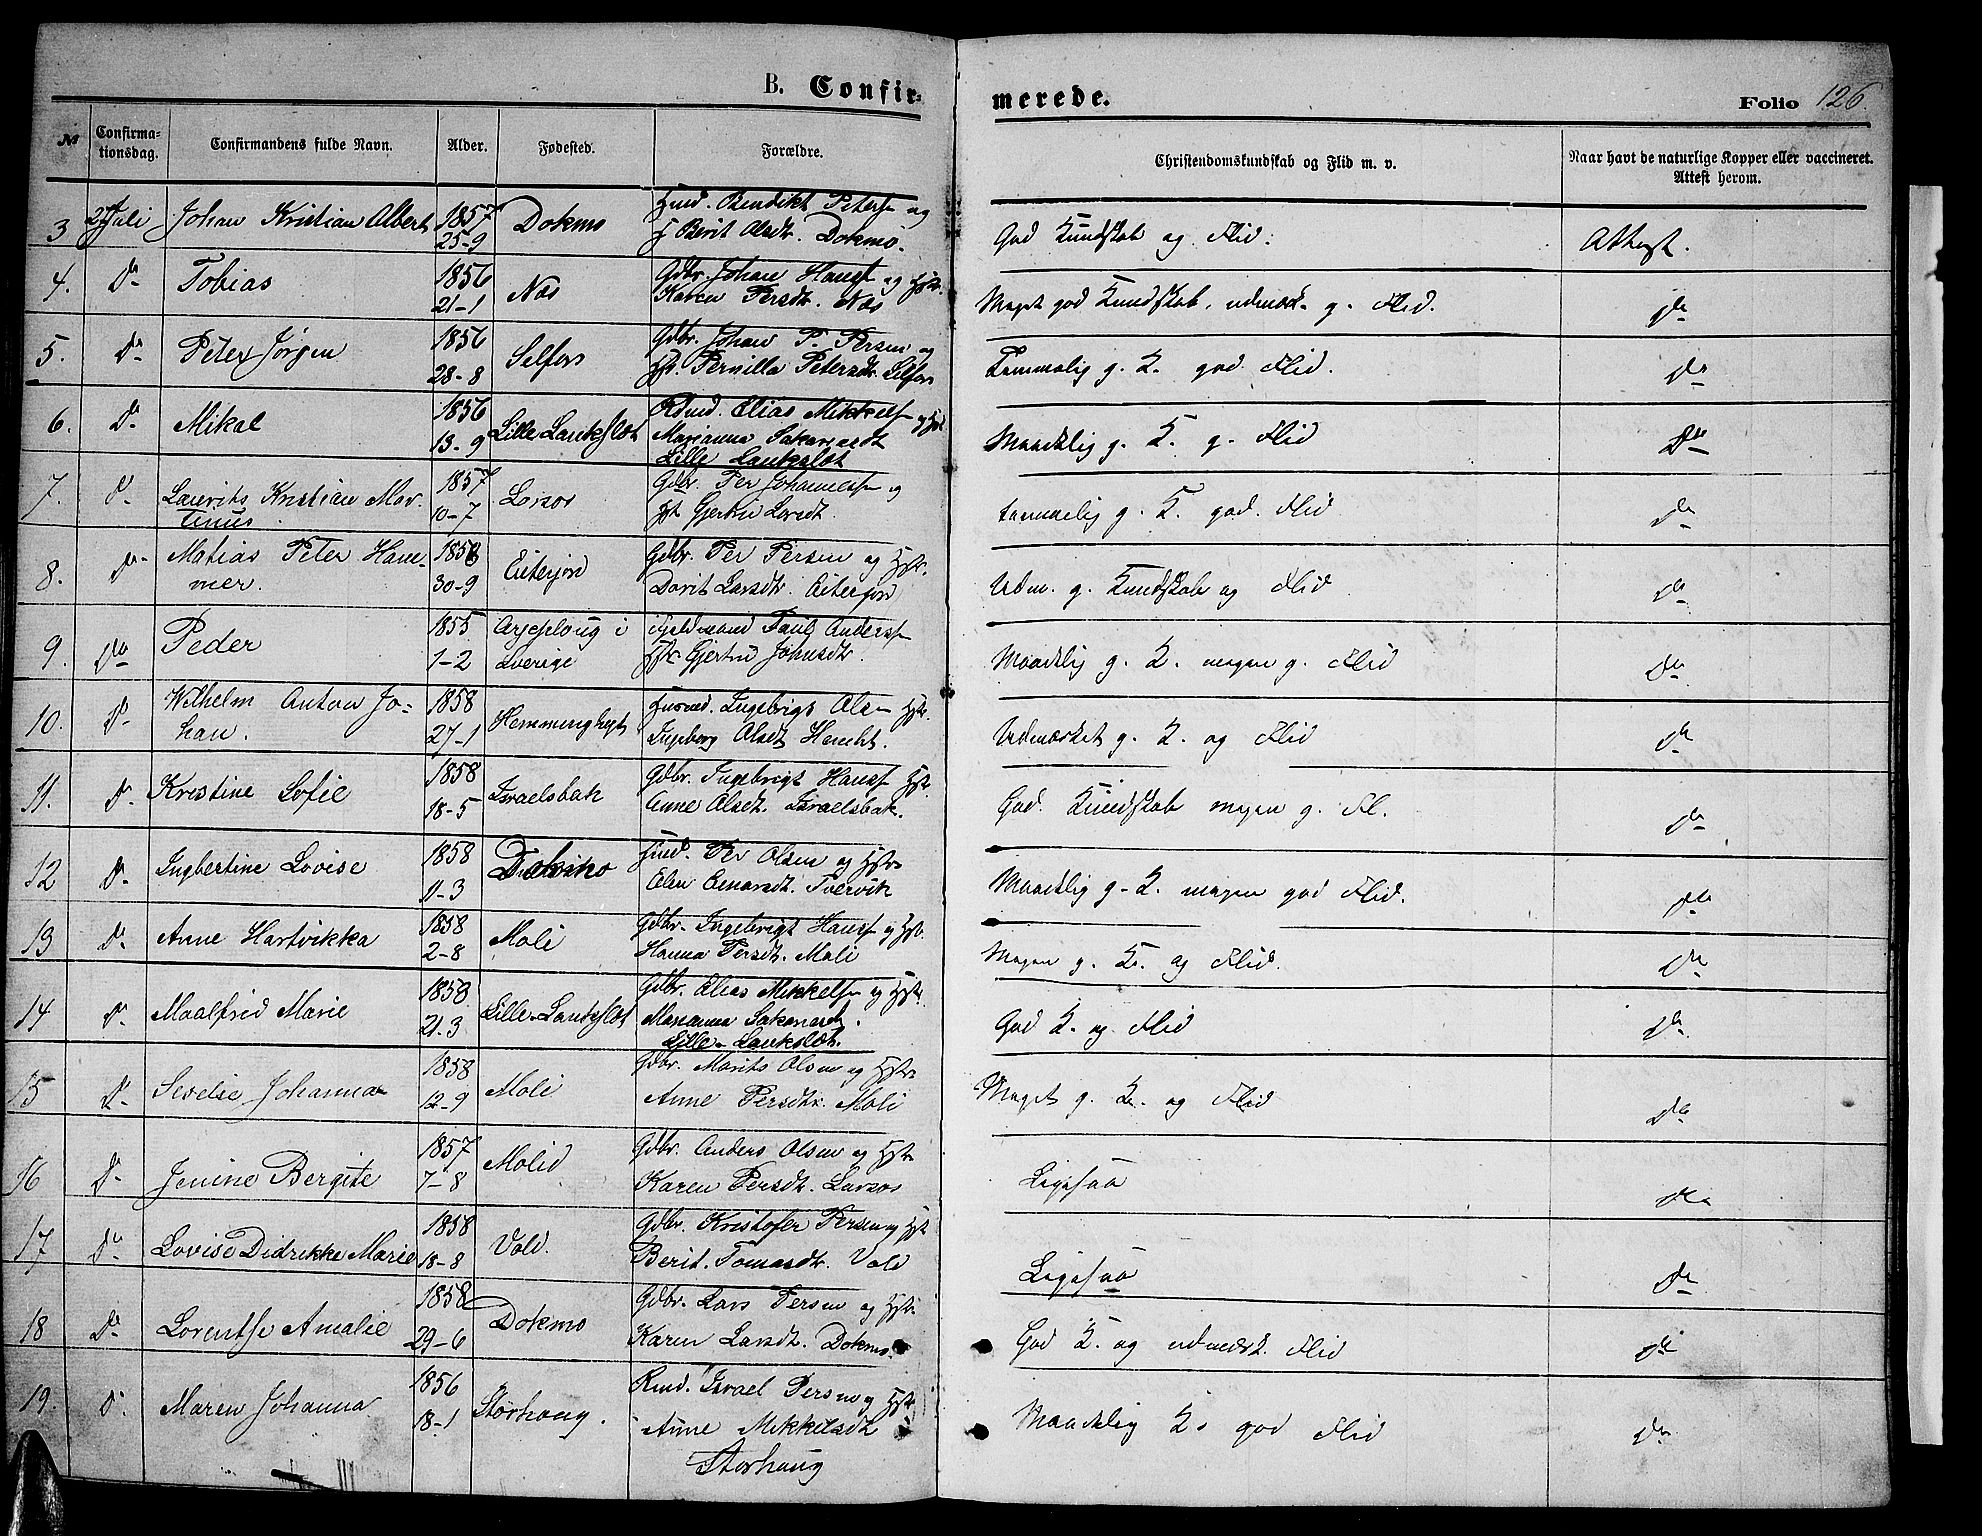 B. Confir-
merede.
Folio 126.
№ Confirma-tionsdag. Confirmandens fulde Navn. Alder. Fødested. Forældre. Christendomskundskab og Flid m. v. Naar havt de naturlige Kopper eller vaccineret. Attest herom.
3 Juli Johan Kristian Albert 1857 25-9 Dokmo Husmd. Bendikt Petersen og H. Berit Olsdt. Dokmo. God Kundskab og Flid. Attest.
4. Do Tobias 1856 21-1 Næs Gdbr. Johan Hansen og Hstr. Karen Persdt. Næs Meget god Kundskab, udmærk. g. Flid. Do
5. Do Peter Jørgen 1856 28-8 Selfors Gdbr. Johan P. Persen og Hst. Pernilla Petersdt. Selfors Temmelig g. K. god Flid. Do
6. Do Mikal 1856 13-9 Lille Laukslet Rdmd. Elias Mikkelsen og Hst. Marianna Sakariasdt Lille Laukslet Maadelig g. K. g. Flid Do
7. Do Laurits Kristian Martinus 1857 10-7 Larsos Gdbr. Per Johannessen og Hst. Gjertru Larsdt. temmelig g. K. god. Flid Do
8. Do Matias Peter Hammer. 1858 30-9 Eiterjord Gdbr. Per Persen og Hstr. Dorit Larsdtr. Eiterjord Udm. g. Kundskab og Flid Do
9. Do Peder 1855 1-2 Arjeploug i Sverige Fjeldmand Paul Andersen Hstr. Gjertru Johnsdtr. Maadelig g. K. megen g. Flid Do
10. Do Wilhelm Anton Johan. 1858 27-1 Hemminghyt Husmd. Ingebrigt Olsen Hstr. Ingeborg Olsdt Maadelig Udmærket g. K. og Flid Do
11. Do Kristine Sofie 1858 18-5 Israelsbak Gdbr. Ingebrigt Hansen Hstr. Anne Olsdt. Israelsbak. God. Kundskab megen g. Fl. Do
12 Do Ingbertine Lovise 1858 11-3 Dokmo Husmd. Per Olsen og Hstr. Elen Einarsdt. Tvervik Maadelig g. K. megen god Flid. Do
13 Do Anne Hartvikka 1858 2-8 Moli Gdbr. Ingebrigt Hansen og Hstr. Hanna Persdt. Moli Megen g. K. og Flid. Do
14 Do Maalfrid Marie 1858 21.3 Lille-Laukslet Gdbr. Elias Mikkelsen og Hst. Marianna Sakariasdt. Lille-Laukslet. God K. og Flid Do
15 Do Sevelse Johanna 1858 12-9 Moli Gdbr. Morits Olsen og Hstr. Anne Persdtr. Moli Meget g. K. og Flid Do
16 Do Jenine Bergite 1857 7-8 Molid Gdbr. Anders Olsen og Hstr. Karen Persdtr. Larsos Ligesaa Do
17 Do Lovise Didrikke Marie 1858 18-8 Vold. Gdbr. Kristofer Persen og Hst. Berit. Tomasdtr. Vold Ligesaa Do
18 Do Lorentse Amalie 1858 29-6 Dokmo Gdbr. Lars Persen og Hstr. Karen Larsdt. Dokmo. God K. og udmærk. Flid Do
19. Do Maren Johanna 1856 18-1 Storhaug. Rmd. Israel Persen og Hst. Anne Mikkelsdt Storhaug Maadelig K. god Flid Do